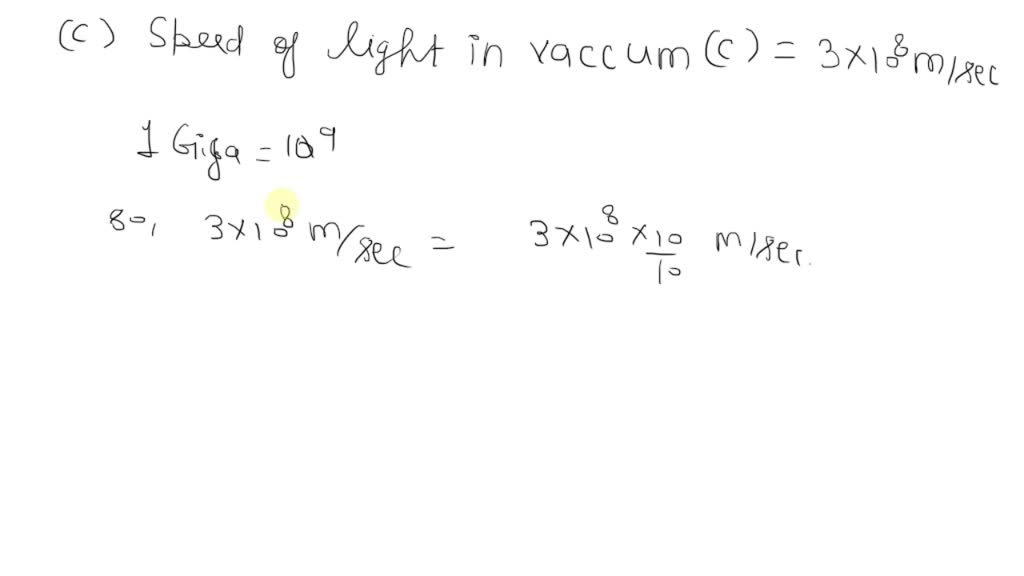 (C) Speed of light in vaccum (C) = 3×10⁸ m/sec
1 Giga = 10⁹
So, 3×10⁸ m/sec = 3×10⁸ × 10/10 m/sec.